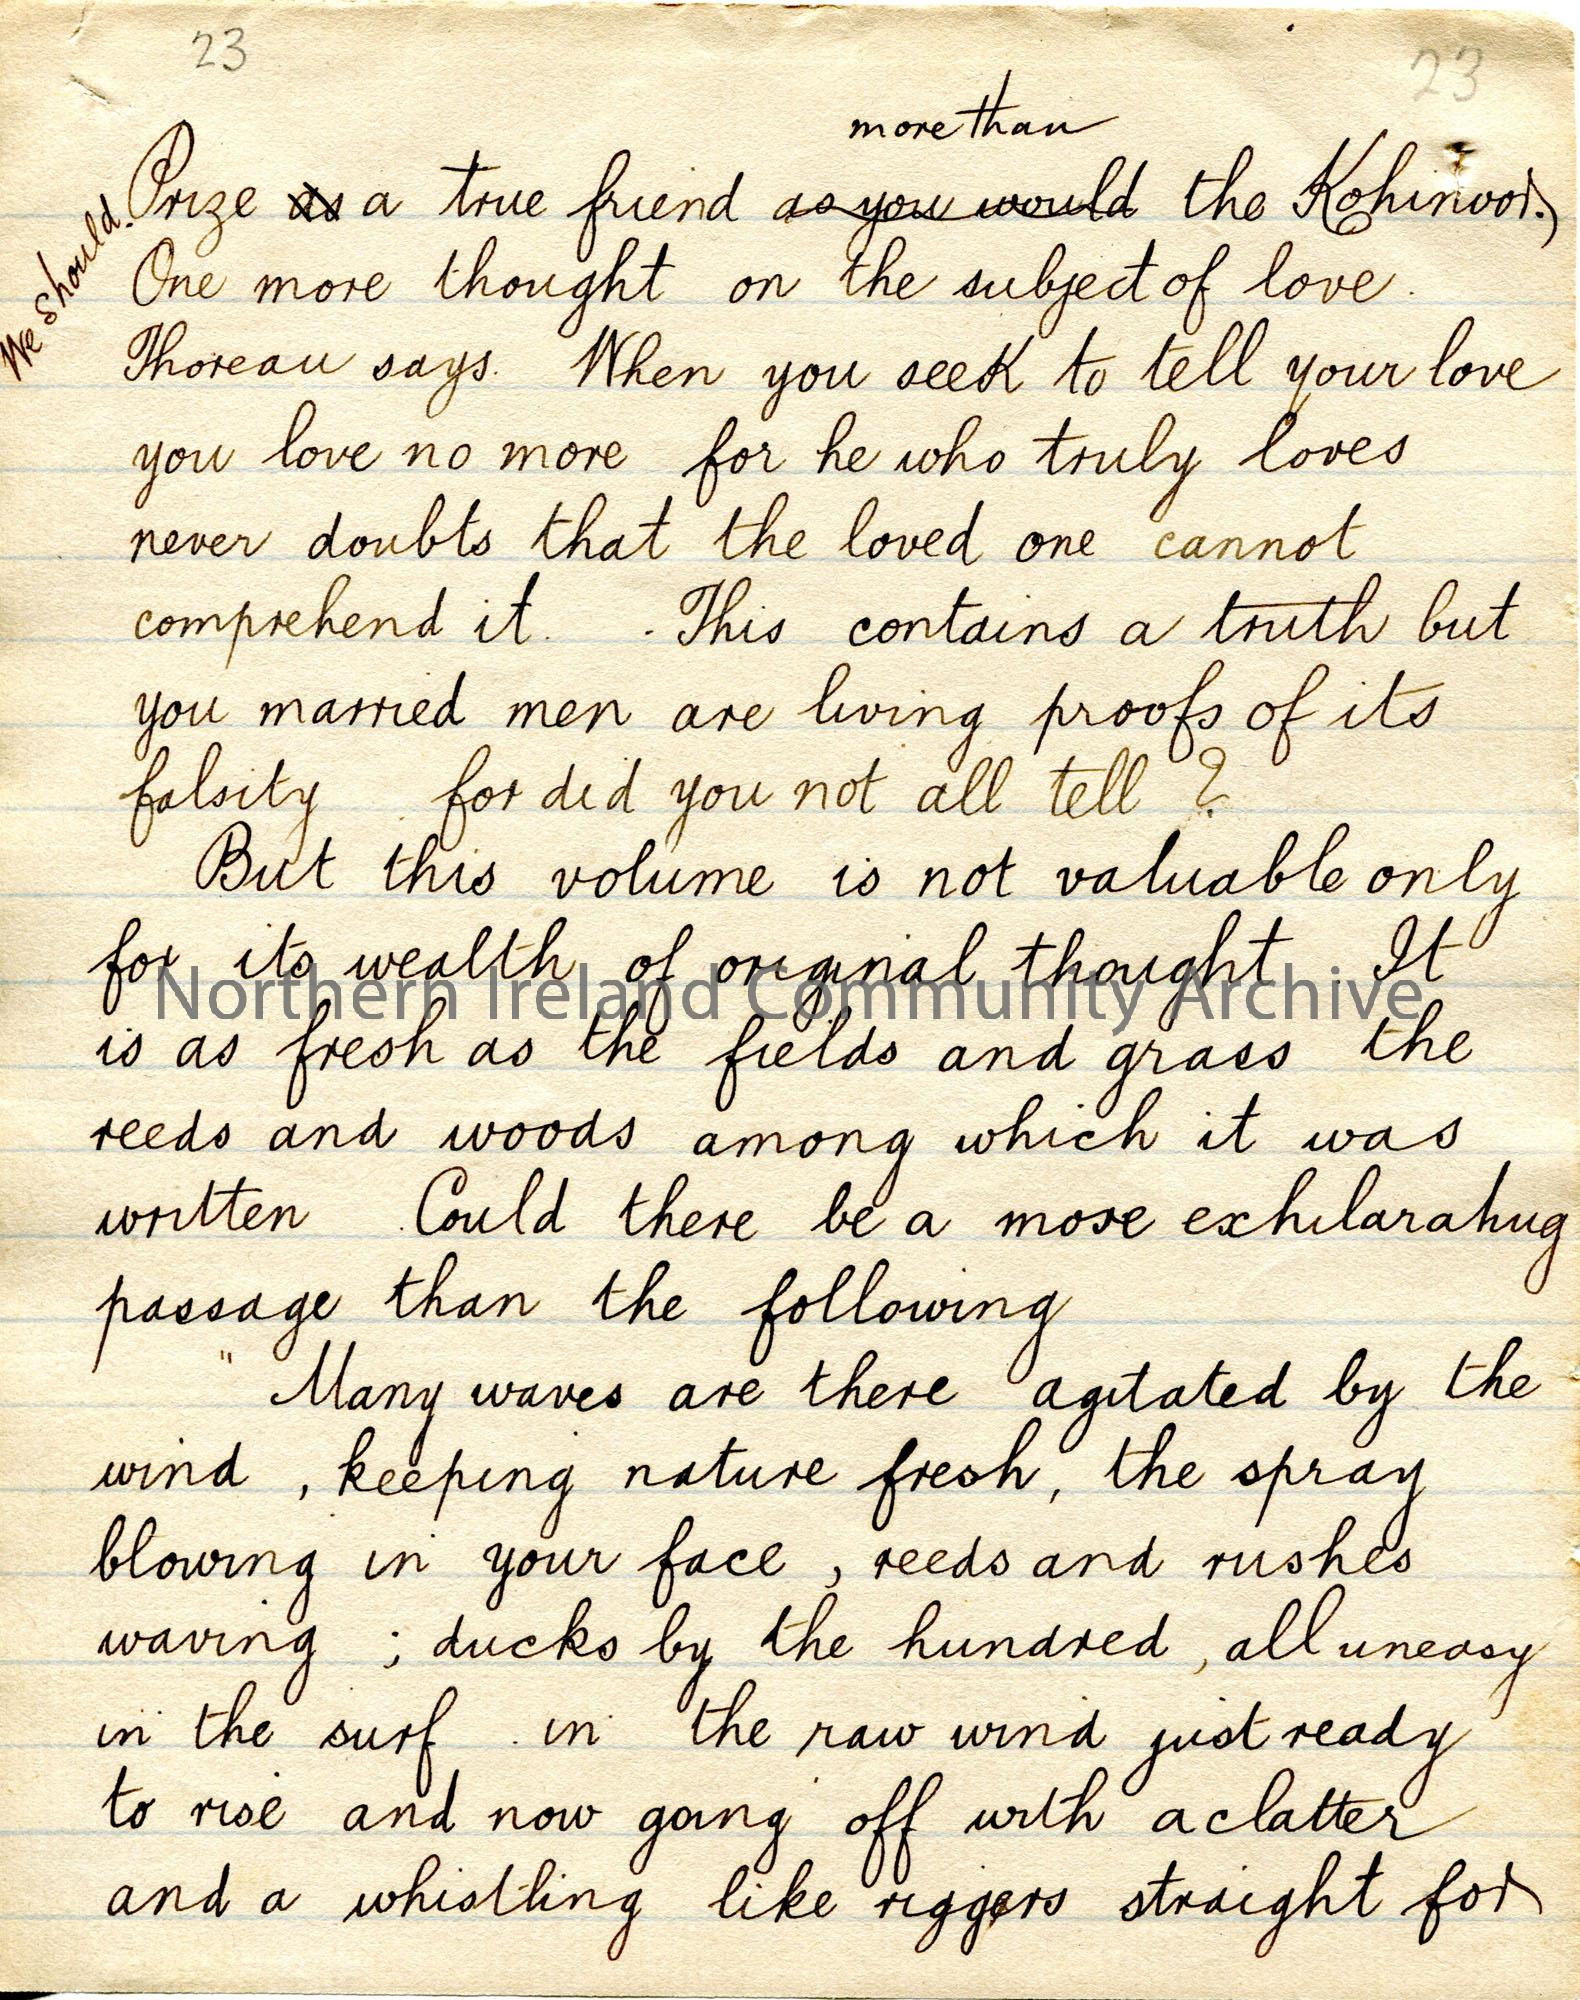 23
23
more than
We should. Prize as a true friend as you would the Kohinoor.
One more thought on the subject of love.
Thoreau says. When you seek to tell your love
you love no more for he who truly loves
never doubts that the loved one cannot
comprehend it. This contains a truth but
you married men are living proofs of its
falsity for did you not all tell ?
But this volume is not valuable only
for its wealth of original thought It
Northern Ireland Community Archive
is as fresh as the fields and grass the
reeds and woods among which it was
written Could there be a more exhilarating
passage than the following
" Many waves are there agitated by the
wind , keeping nature fresh, the spray
blowing in your face , reeds and rushes
waving ; ducks by the hundred , all uneasy
in the surf in the raw wind just ready
to rise and now going off with a clatter
and a whistling like riggers straight for